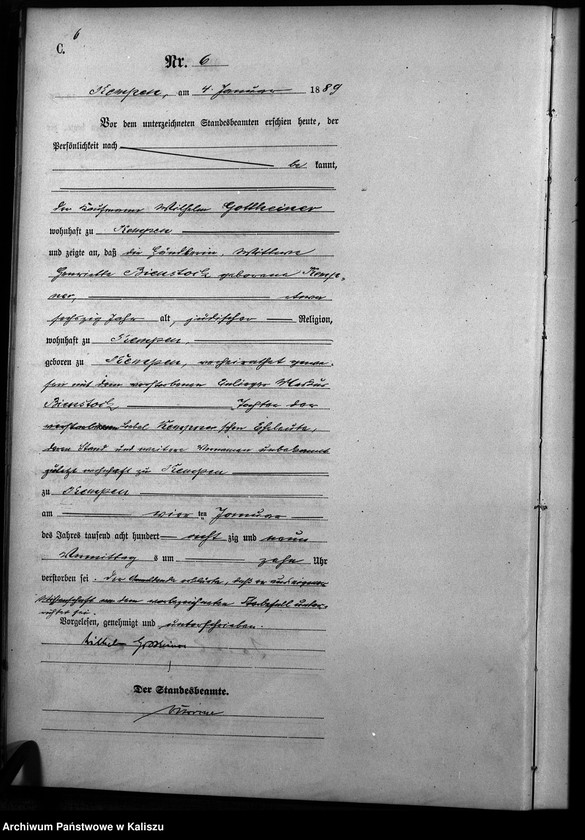 6
C.
Nr. 6
Kempen, am 4. Januar 1889
Vor dem unterzeichneten Standesbeamten erschien heute, der
Persönlichkeit nach
be kannt,
der Kaufmann Wilhelm Gottheiner
wohnhaft zu Kempen
und zeigte an, daß die Händlerin, Wittwe
Henriette Bienstock, geborene Kemp-
ner, etwa
sechszig Jahr alt, jüdischer Religion,
wohnhaft zu Kempen,
geboren zu Kempen, verheirathet gewe-
sen mit dem verstorbenen Markus
Bienstock, Tochter der
verstorbenen Kempner'schen Eheleute,
deren Stand und weitere Vornamen unbekannt
zuletzt wohnhaft zu Kempen
zu Kempen
am vier ten Januar
des Jahres tausend acht hundert acht zig und neun
Vormittag s um zehn Uhr
verstorben sei. Der erklärte, daß er aus eigener
Wissenschaft von dem vorbezeichneten Sterbefall unter-
richtet sei.
Vorgelesen, genehmigt und unterschrieben.
Wilhelm Gottheiner
Der Standesbeamte.
Archiwum Państwowe w Kaliszu